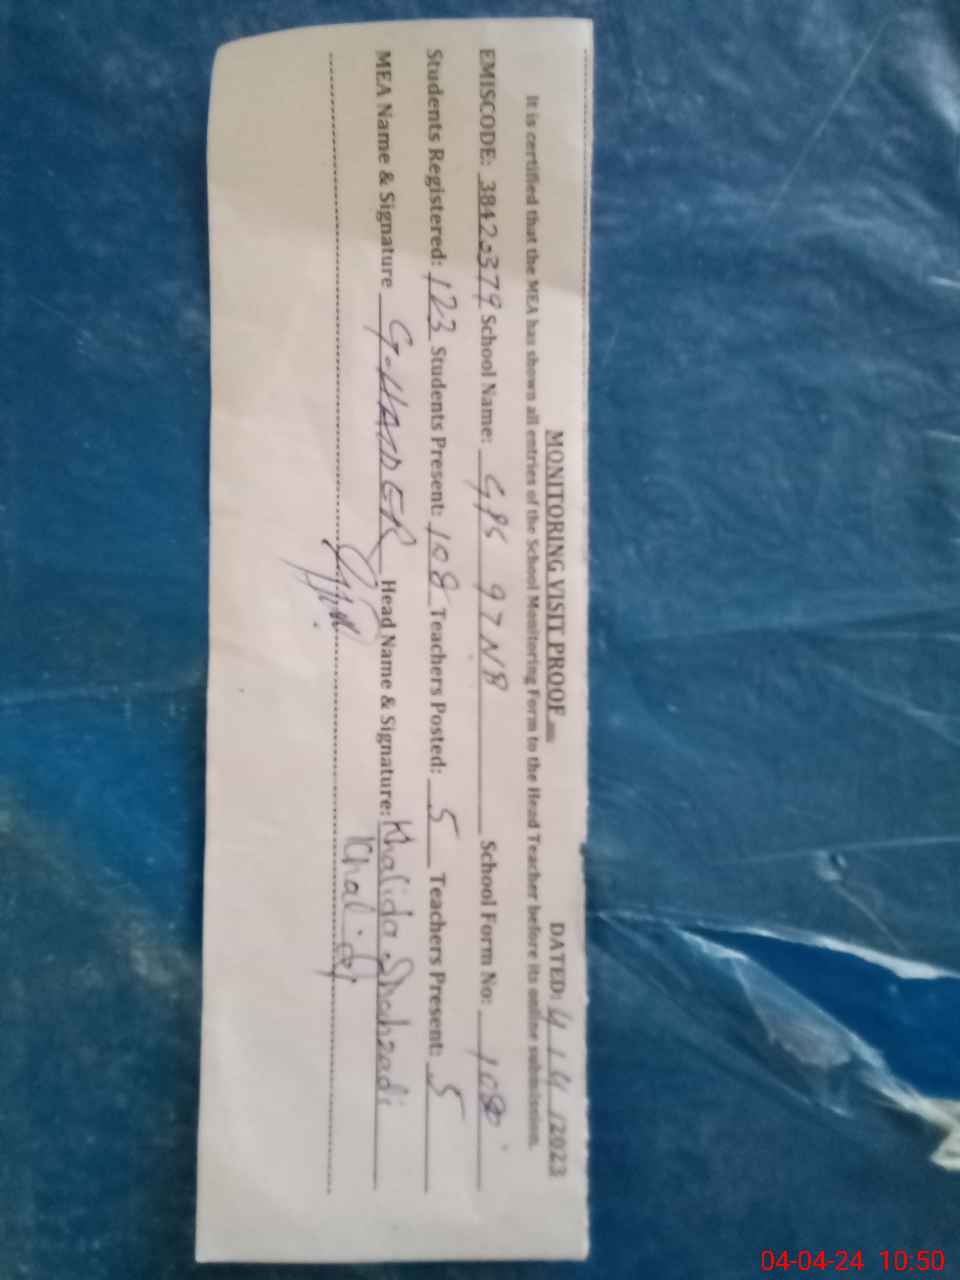 MONITORING VISIT PROOF DATED: 4/4/2023
It is certified that the MEA has shown all entries of the School Monitoring Form to the Head Teacher before its online submission.
EMISCODE: 38420379 School Name: GPS 97 NB School Form No: 108
Students Registered: 123 Students Present: 108 Teachers Posted: 5 Teachers Present: 5
MEA Name & Signature G. HAIDER Head Name & Signature: Khalida Shahzadi
04-04-24 10:50